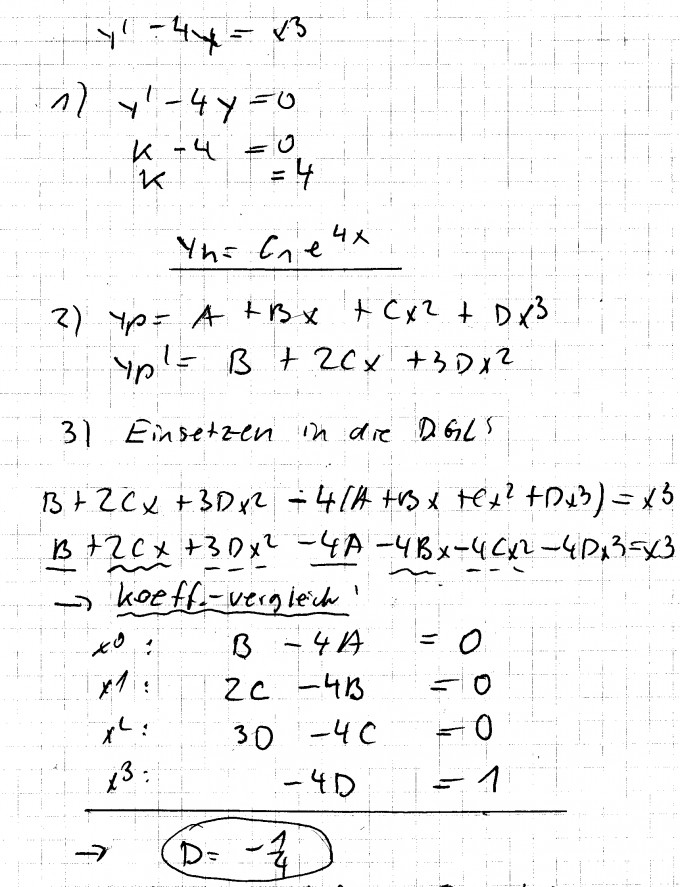 y' - 4y = x3
1) y' - 4y = 0
k - 4 = 0
k = 4
yh = C1 e^4x
2) yp = A + Bx + Cx2 + Dx3
yp' = B + 2Cx + 3Dx2
3) Einsetzen in die DGL:
B + 2Cx + 3Dx2 - 4(A + Bx + Cx2 + Dx3) = x3
B + 2Cx + 3Dx2 - 4A - 4Bx - 4Cx2 - 4Dx3 = x3
→ koeff.-vergleich:
x0: B - 4A = 0
x1: 2C - 4B = 0
x2: 3D - 4C = 0
x3: -4D = 1
→ D = -1/4